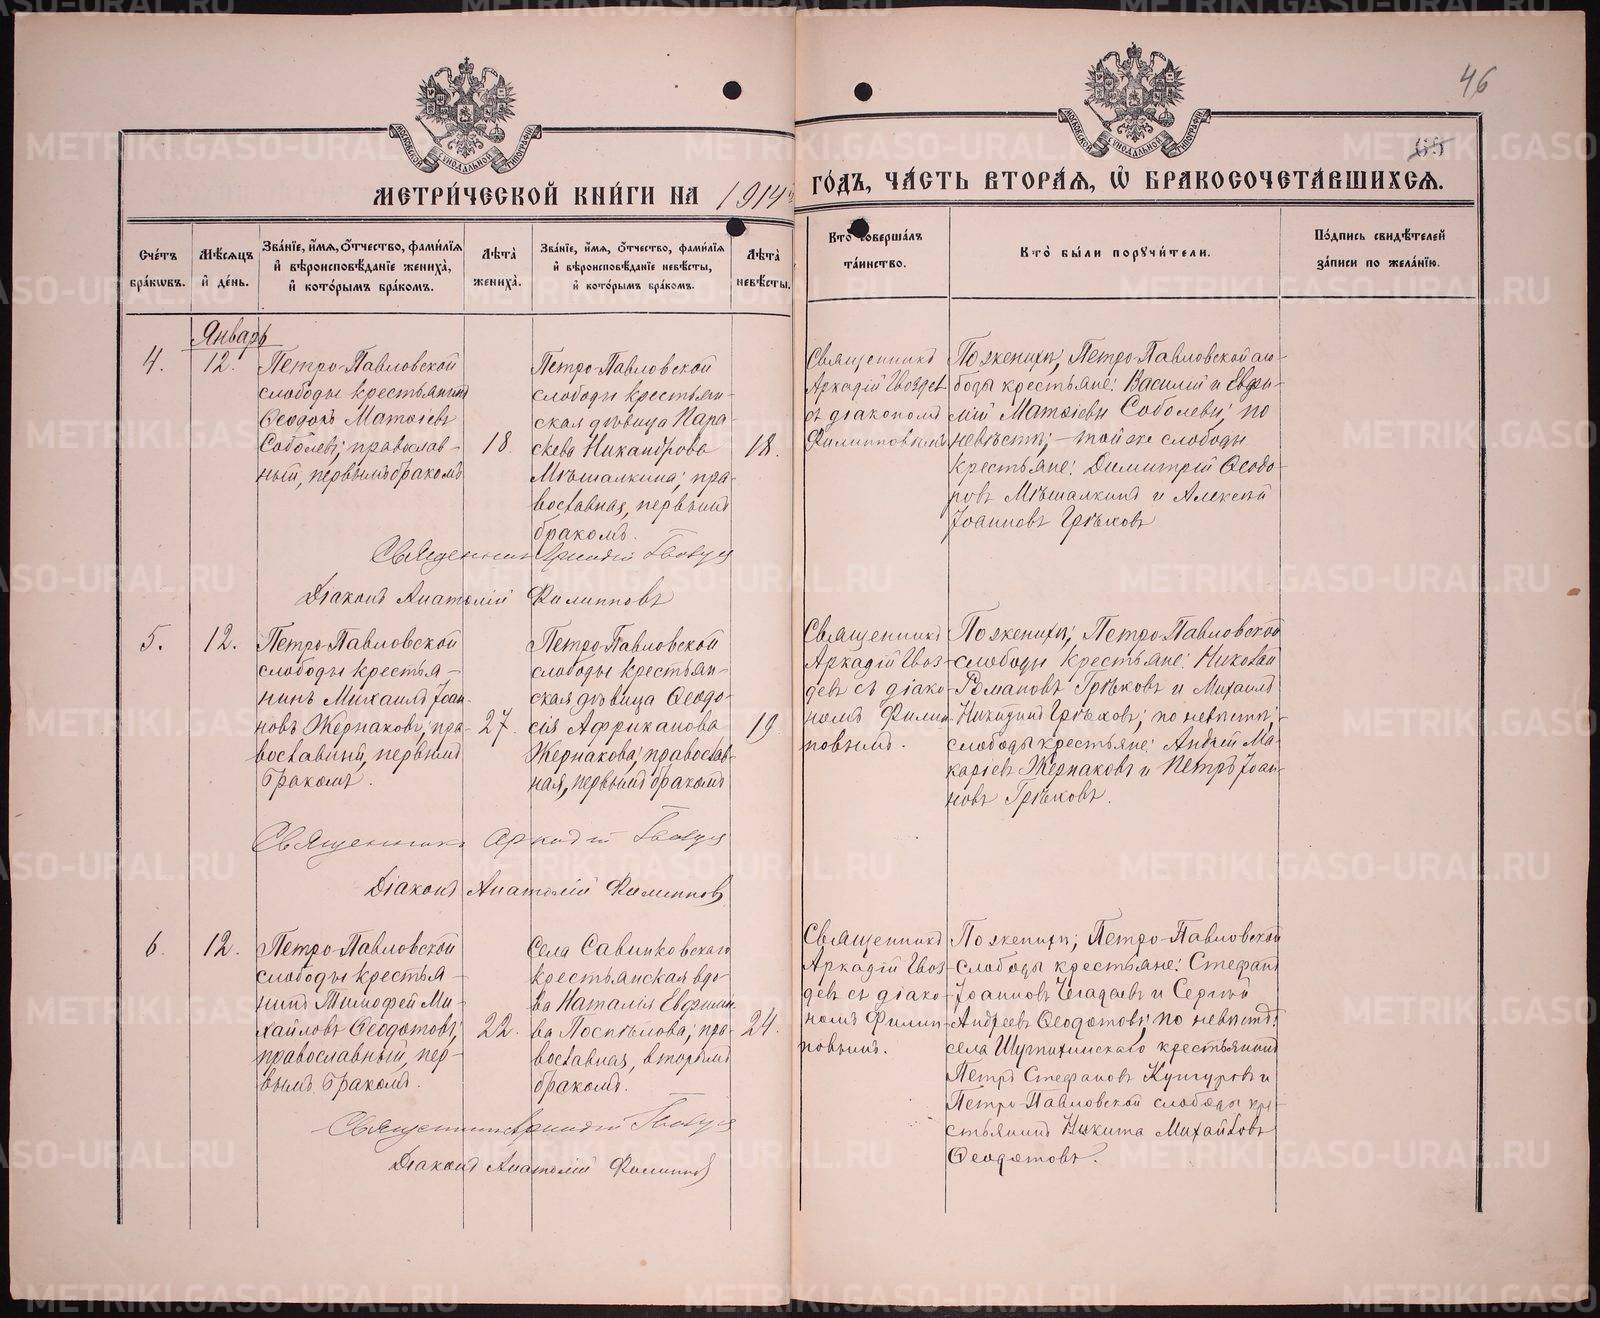 46
65
МОСКОВСКОЙ СѴНОДАЛЬНОЙ ТИПОГРАФІИ
МОСКОВСКОЙ СѴНОДАЛЬНОЙ ТИПОГРАФІИ
МЕТРИ́ЧЕСКОЙ КНИ́ГИ НА 1914 ГО́ДЪ, ЧА́СТЬ ВТОРА́Ѧ, Ѽ БРАКОСОЧЕТА́ВШИХСѦ.
Сче́тъ бра́кѡвъ.
Мѣ́сѧцъ и҆ де́нь.
Зва́нїе, и҆́мѧ, ѻ҆́тчество, фами́лїѧ и҆ вѣроисповѣ́данїе жениха̀, и҆ кото́рымъ бра́комъ.
Лѣ́та жениха̀.
Зва́нїе, и҆́мѧ, ѻ҆́тчество, фами́лїѧ и҆ вѣроисповѣ́данїе невѣ́сты, и҆ кото́рымъ бра́комъ.
Лѣ́та невѣ́сты.
Кто̀ соверша́лъ та́инство.
Кто̀ бы́ли порꙋчи́тели.
По́дпись свидѣ́телей за́писи по жела́нїю.
Январь
4.
12.
Петро-Павловской
слободы крестьянинъ
Ѳеодоръ Матѳіевъ
Соболевъ; православ-
ный, первымъ бракомъ
18
Петро-Павловской
слободы крестьян-
ская дѣвица Пара-
скева Никандрова
Мѣшалкина; пра-
вославная, первымъ
бракомъ.
18.
Священникъ
Аркадій Гвоздев
съ діакономъ
Филипповымъ
По женихѣ; Петро-Павловской сло-
боды крестьяне: Василій и Евфи-
мій Матѳіевы Соболевы; по
невѣстѣ; — той же слободы
крестьяне: Димитрій Ѳеодо-
ровъ Мѣшалкинъ и Алексѣй
Іоанновъ Грѣховъ
Священник Аркадій Гвоздев
Діаконъ Анатолій Филипповъ
5.
12.
Петро-Павловской
слободы крестья-
нинъ Михаилъ Іоан-
новъ Жернаковъ; пра-
вославный, первымъ
бракомъ.
27
Петро-Павловской
слободы крестьян-
ская дѣвица Ѳеодо-
сія Африканова
Жернакова; православ-
ная, первымъ бракомъ
19
Священникъ
Аркадій Гвоз-
девъ съ діако-
номъ Филип-
повымъ.
По женихѣ; Петро-Павловской
слободы крестьяне: Николай
Романовъ Грѣховъ и Михаилъ
Никитинъ Грѣховъ; по невѣстѣ;-
слободы крестьяне: Андрей Ма-
каріевъ Жернаковъ и Петръ Іоан-
новъ Грѣховъ.
Священникъ Аркадій Гвоздев
Діаконъ Анатолій Филипповъ
6.
12.
Петро-Павловской
слободы крестья-
нинъ Тимофей Ми-
хайловъ Ѳеодотовъ;
православный, пер-
вымъ бракомъ.
22.
Села Савинковскаго
крестьянская вдо-
ва Наталія Евфиміе-
ва Поспѣлова; пра-
вославная, вторымъ
бракомъ.
24.
Священникъ
Аркадій Гвоз-
девъ съ діако-
номъ Филип-
повымъ.
По женихѣ; Петро-Павловской
слободы крестьяне: Стефанъ
Іоанновъ Чегадаевъ и Сергѣй
Андреевъ Ѳеодотовъ; по невѣстѣ:
села Шутихинскаго крестьянинъ
Петръ Стефановъ Кунгуровъ и
Петро-Павловской слободы кре-
стьянинъ Никита Михайловъ
Ѳеодотовъ.
Священник Аркадій Гвоздев
Діаконъ Анатолій Филиппов
METRIKI.GASO-URAL.RU